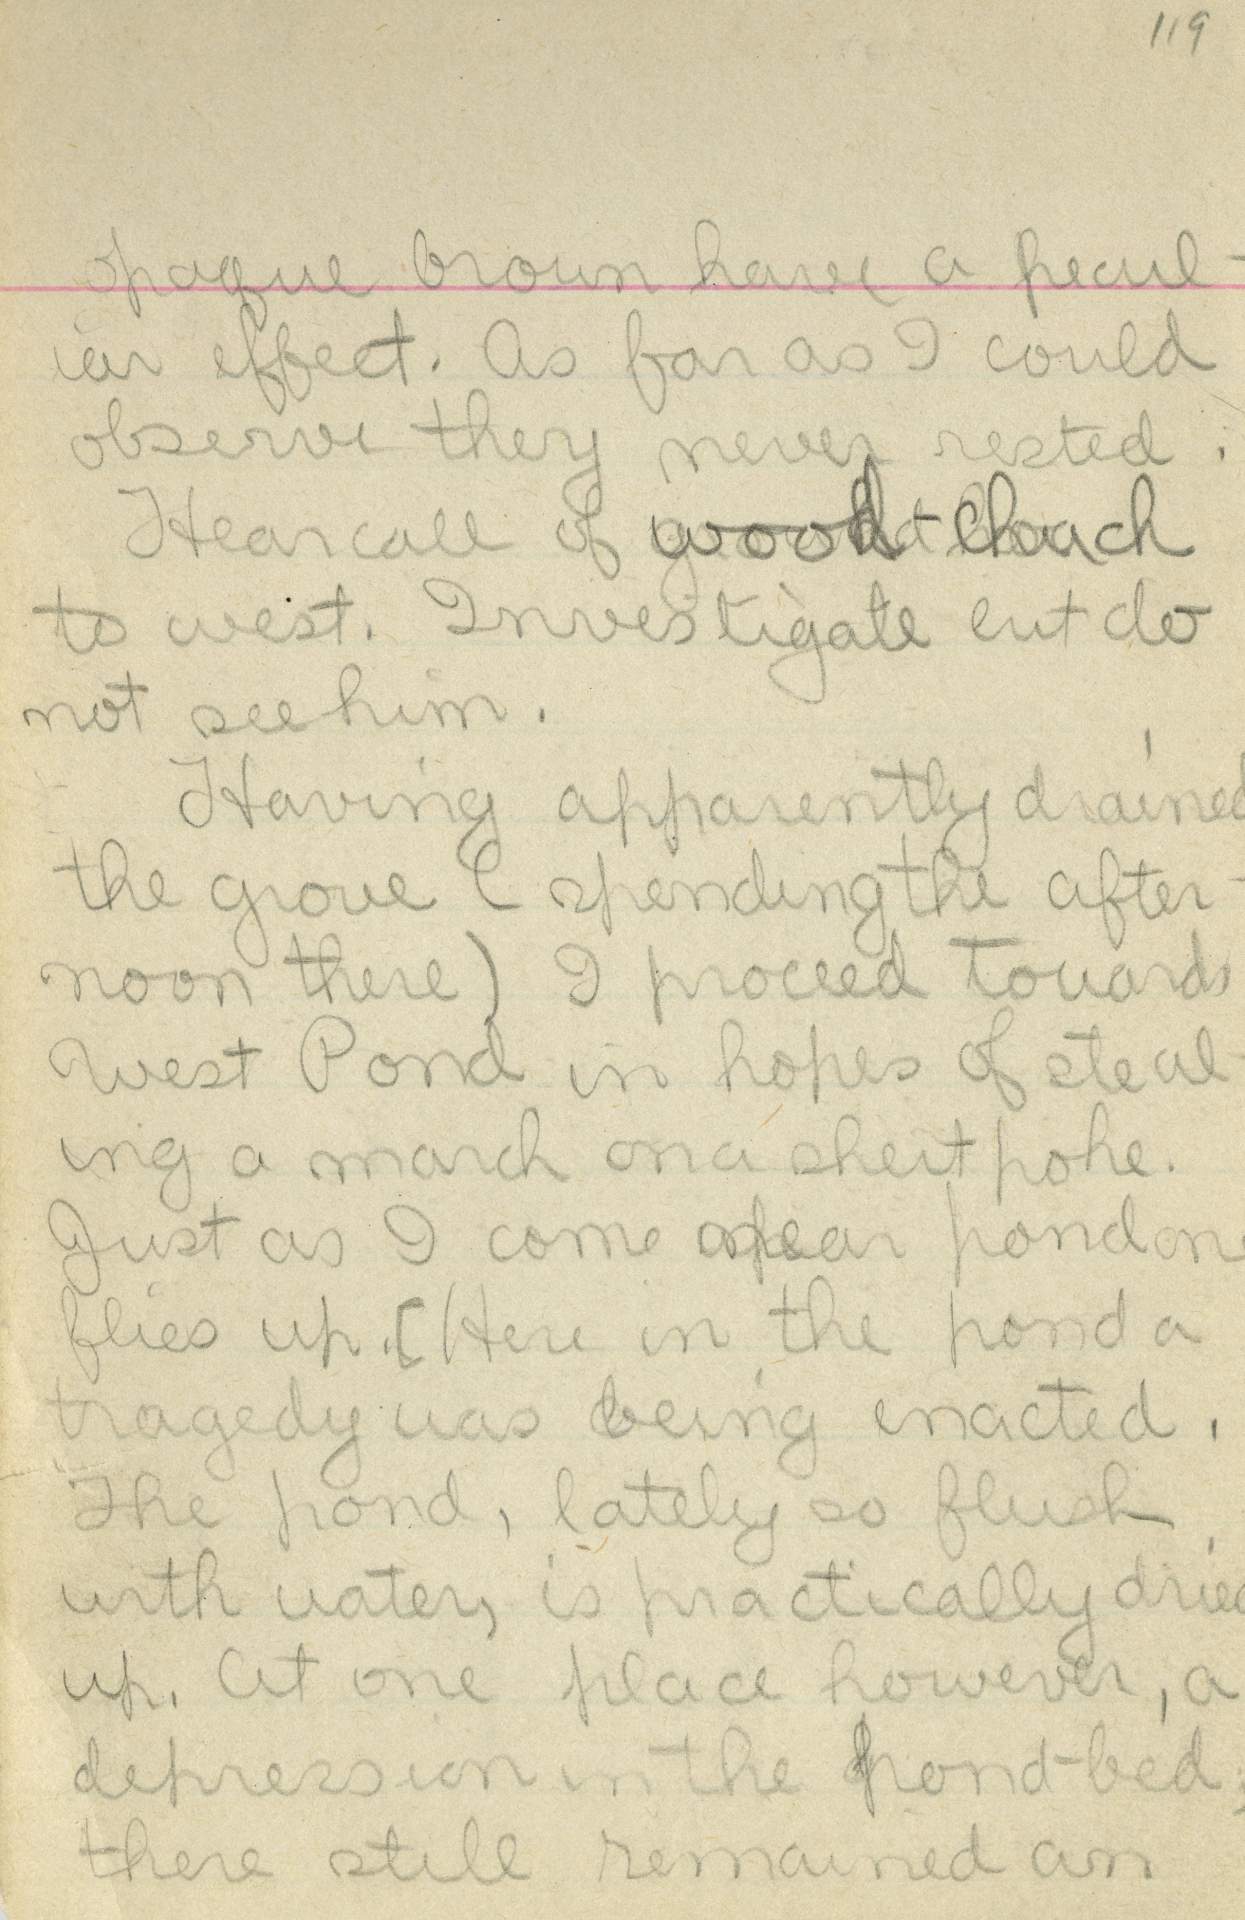 119
opaque brown have a pecul-
iar effect. As far as I could
observe they never rested.
Hear call of chuck
to west. Investigate but do
not see him.
Having apparently drained
the grove (spending the after-
noon there) I proceed towards
West Pond in hopes of steal-
ing a march on a sheitpoke.
Just as I come near pond one
flies up. [Here in the pond a
tragedy was being enacted.
The pond, lately so flush
with water, is practically dried
up. At one place however, a
depression in the pond-bed,
there still remained an